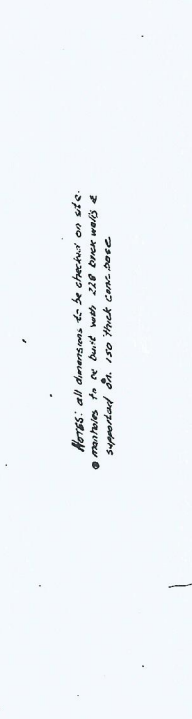 NOTES: all dimensions to be checked on site.
① manholes to be built with 228 brick walls &
supported on 150 thick conc. base